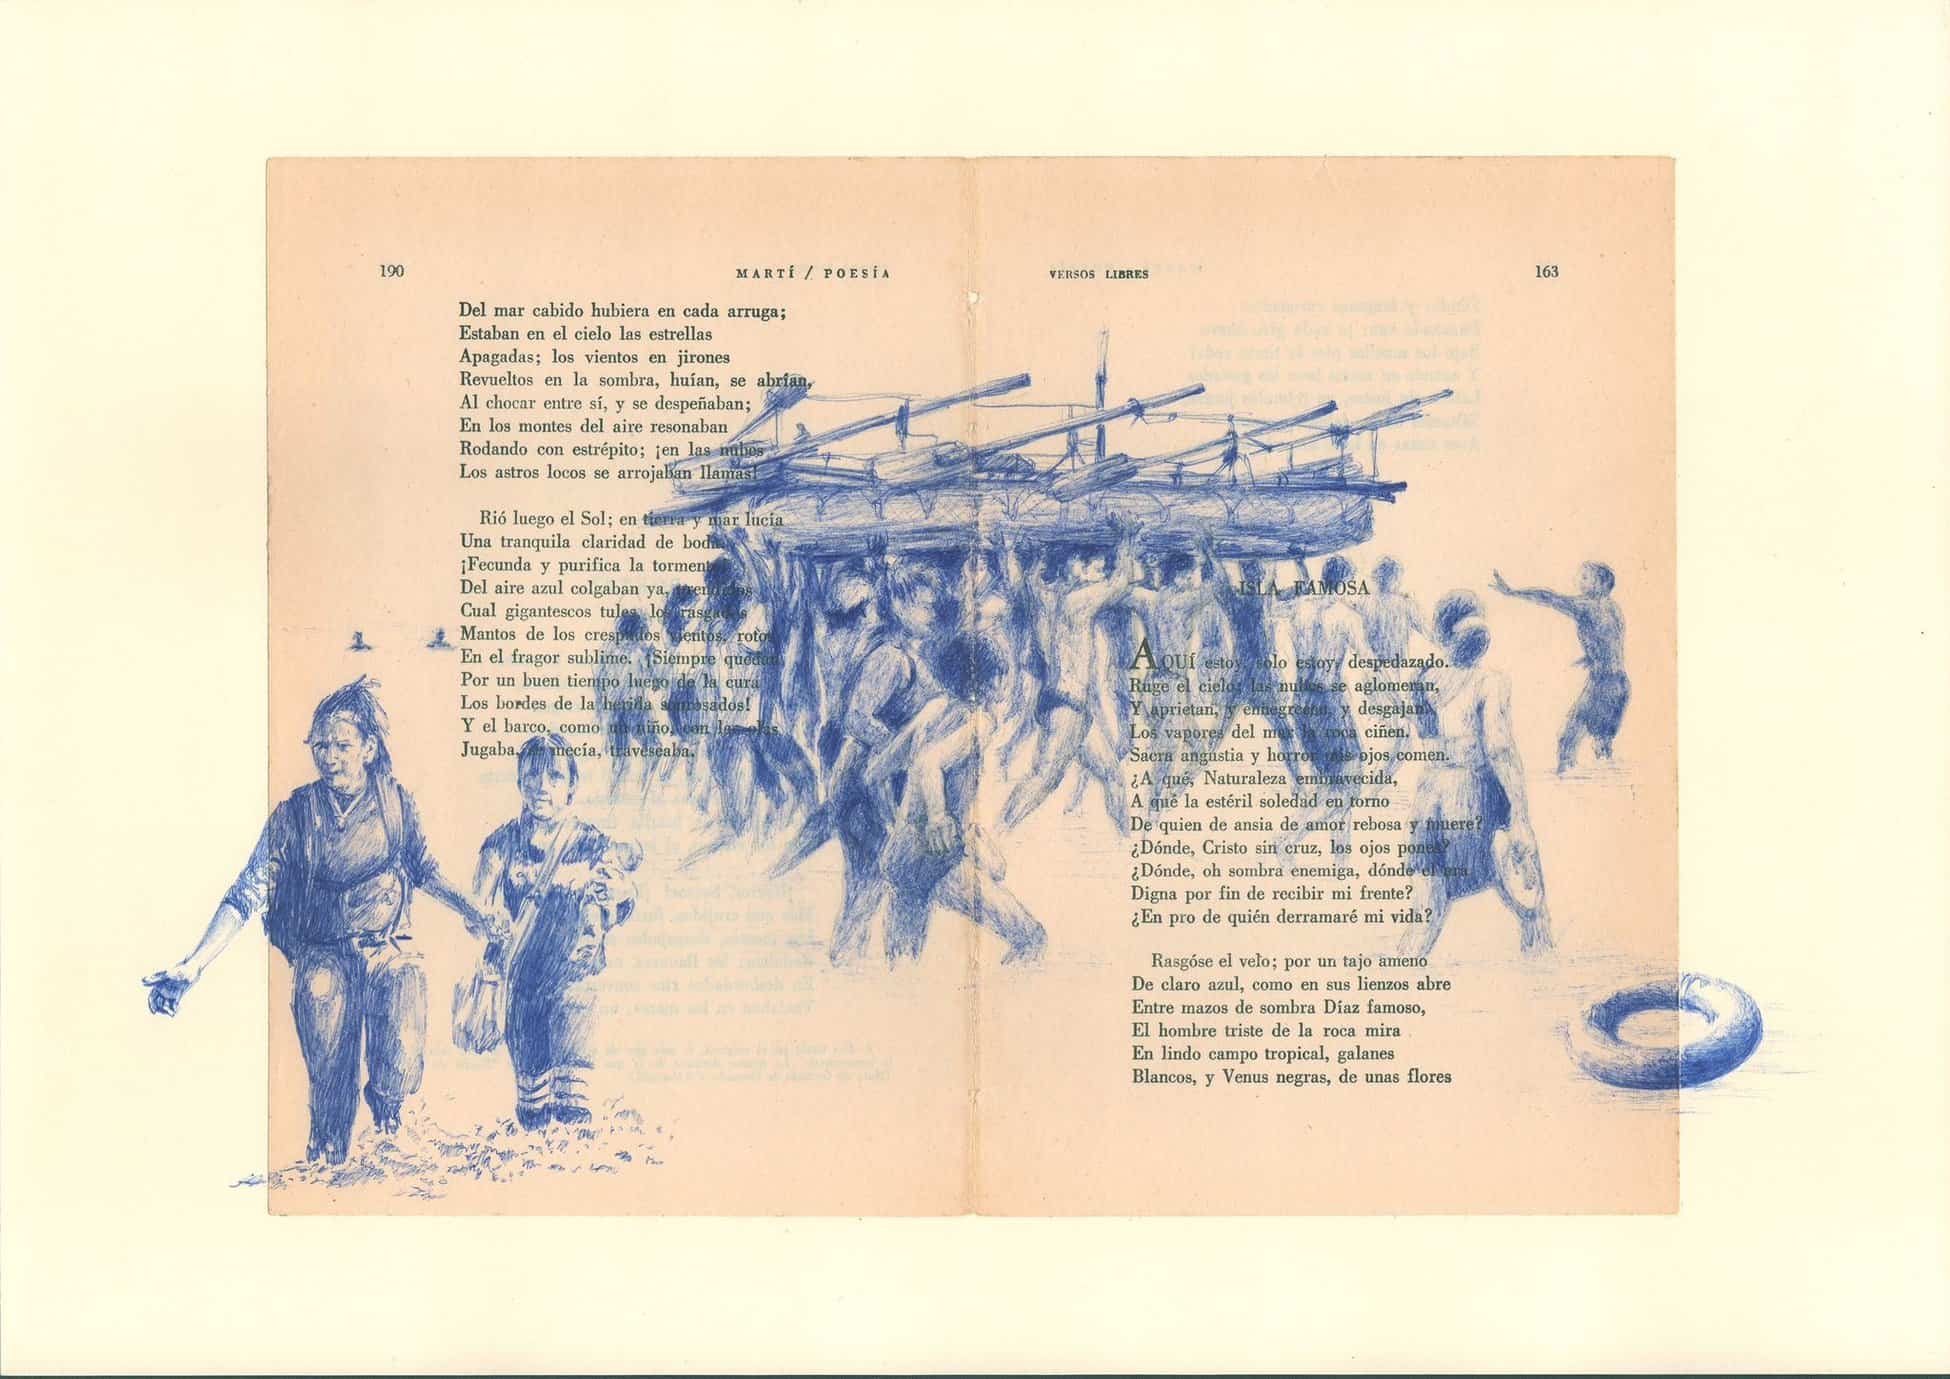 190
MARTÍ / POESÍA
Del mar cabido hubiera en cada arruga;
Estaban en el cielo las estrellas
Apagadas; los vientos en jirones
Revueltos en la sombra, huían, se abrían,
Al chocar entre sí, y se despeñaban;
En los montes del aire resonaban
Rodando con estrépito; ¡en las nubes
Los astros locos se arrojaban llamas!
Rió luego el Sol; en tierra y mar lucía
Una tranquila claridad de boda.
¡Fecunda y purifica la tormenta!
Del aire azul colgaban ya, prendidos
Cual gigantescos tules, los rasgados
Mantos de los crespudos vientos, rotos
En el fragor sublime. ¡Siempre quedan
Por un buen tiempo luego de la cura
Los bordes de la herida sonrosados!
Y el barco, como un niño, con las olas,
Jugaba, se mecía, traveseaba.
VERSOS LIBRES
163
ISLA FAMOSA
AQUÍ estoy, solo estoy, despedazado.
Ruge el cielo; las nubes se aglomeran,
Y aprietan, y ennegrecen, y desgajan:
Los vapores del mar la roca ciñen.
Sacra angustia y horror mis ojos comen.
¿A qué, Naturaleza embravecida,
A qué la estéril soledad en torno
De quien de ansia de amor rebosa y muere?
¿Dónde, Cristo sin cruz, los ojos pones?
¿Dónde, oh sombra enemiga, dónde el ara
Digna por fin de recibir mi frente?
¿En pro de quién derramaré mi vida?
Rasgóse el velo; por un tajo ameno
De claro azul, como en sus lienzos abre
Entre mazos de sombra Díaz famoso,
El hombre triste de la roca mira
En lindo campo tropical, galanes
Blancos, y Venus negras, de unas flores